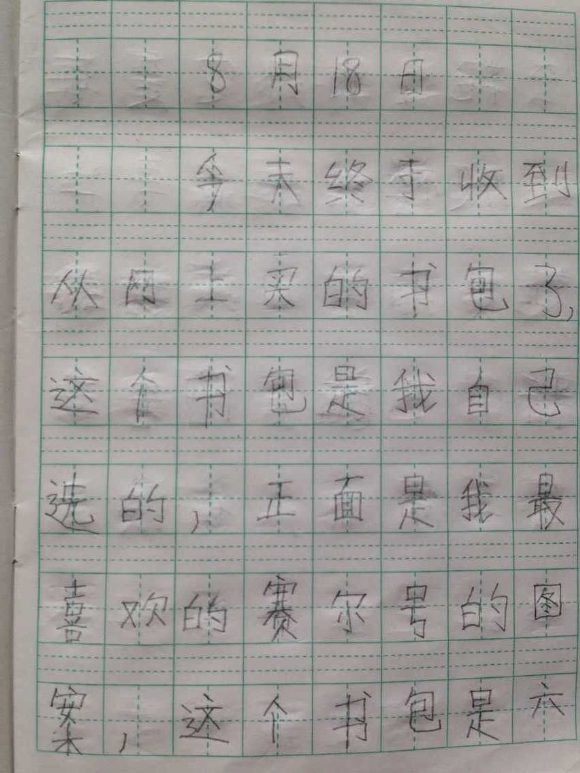 8月18日
今天终于收到
从网上买的书包了,
这个书包是我自己
选的,正面是我最
喜欢的赛尔号的图
案,这个书包是六